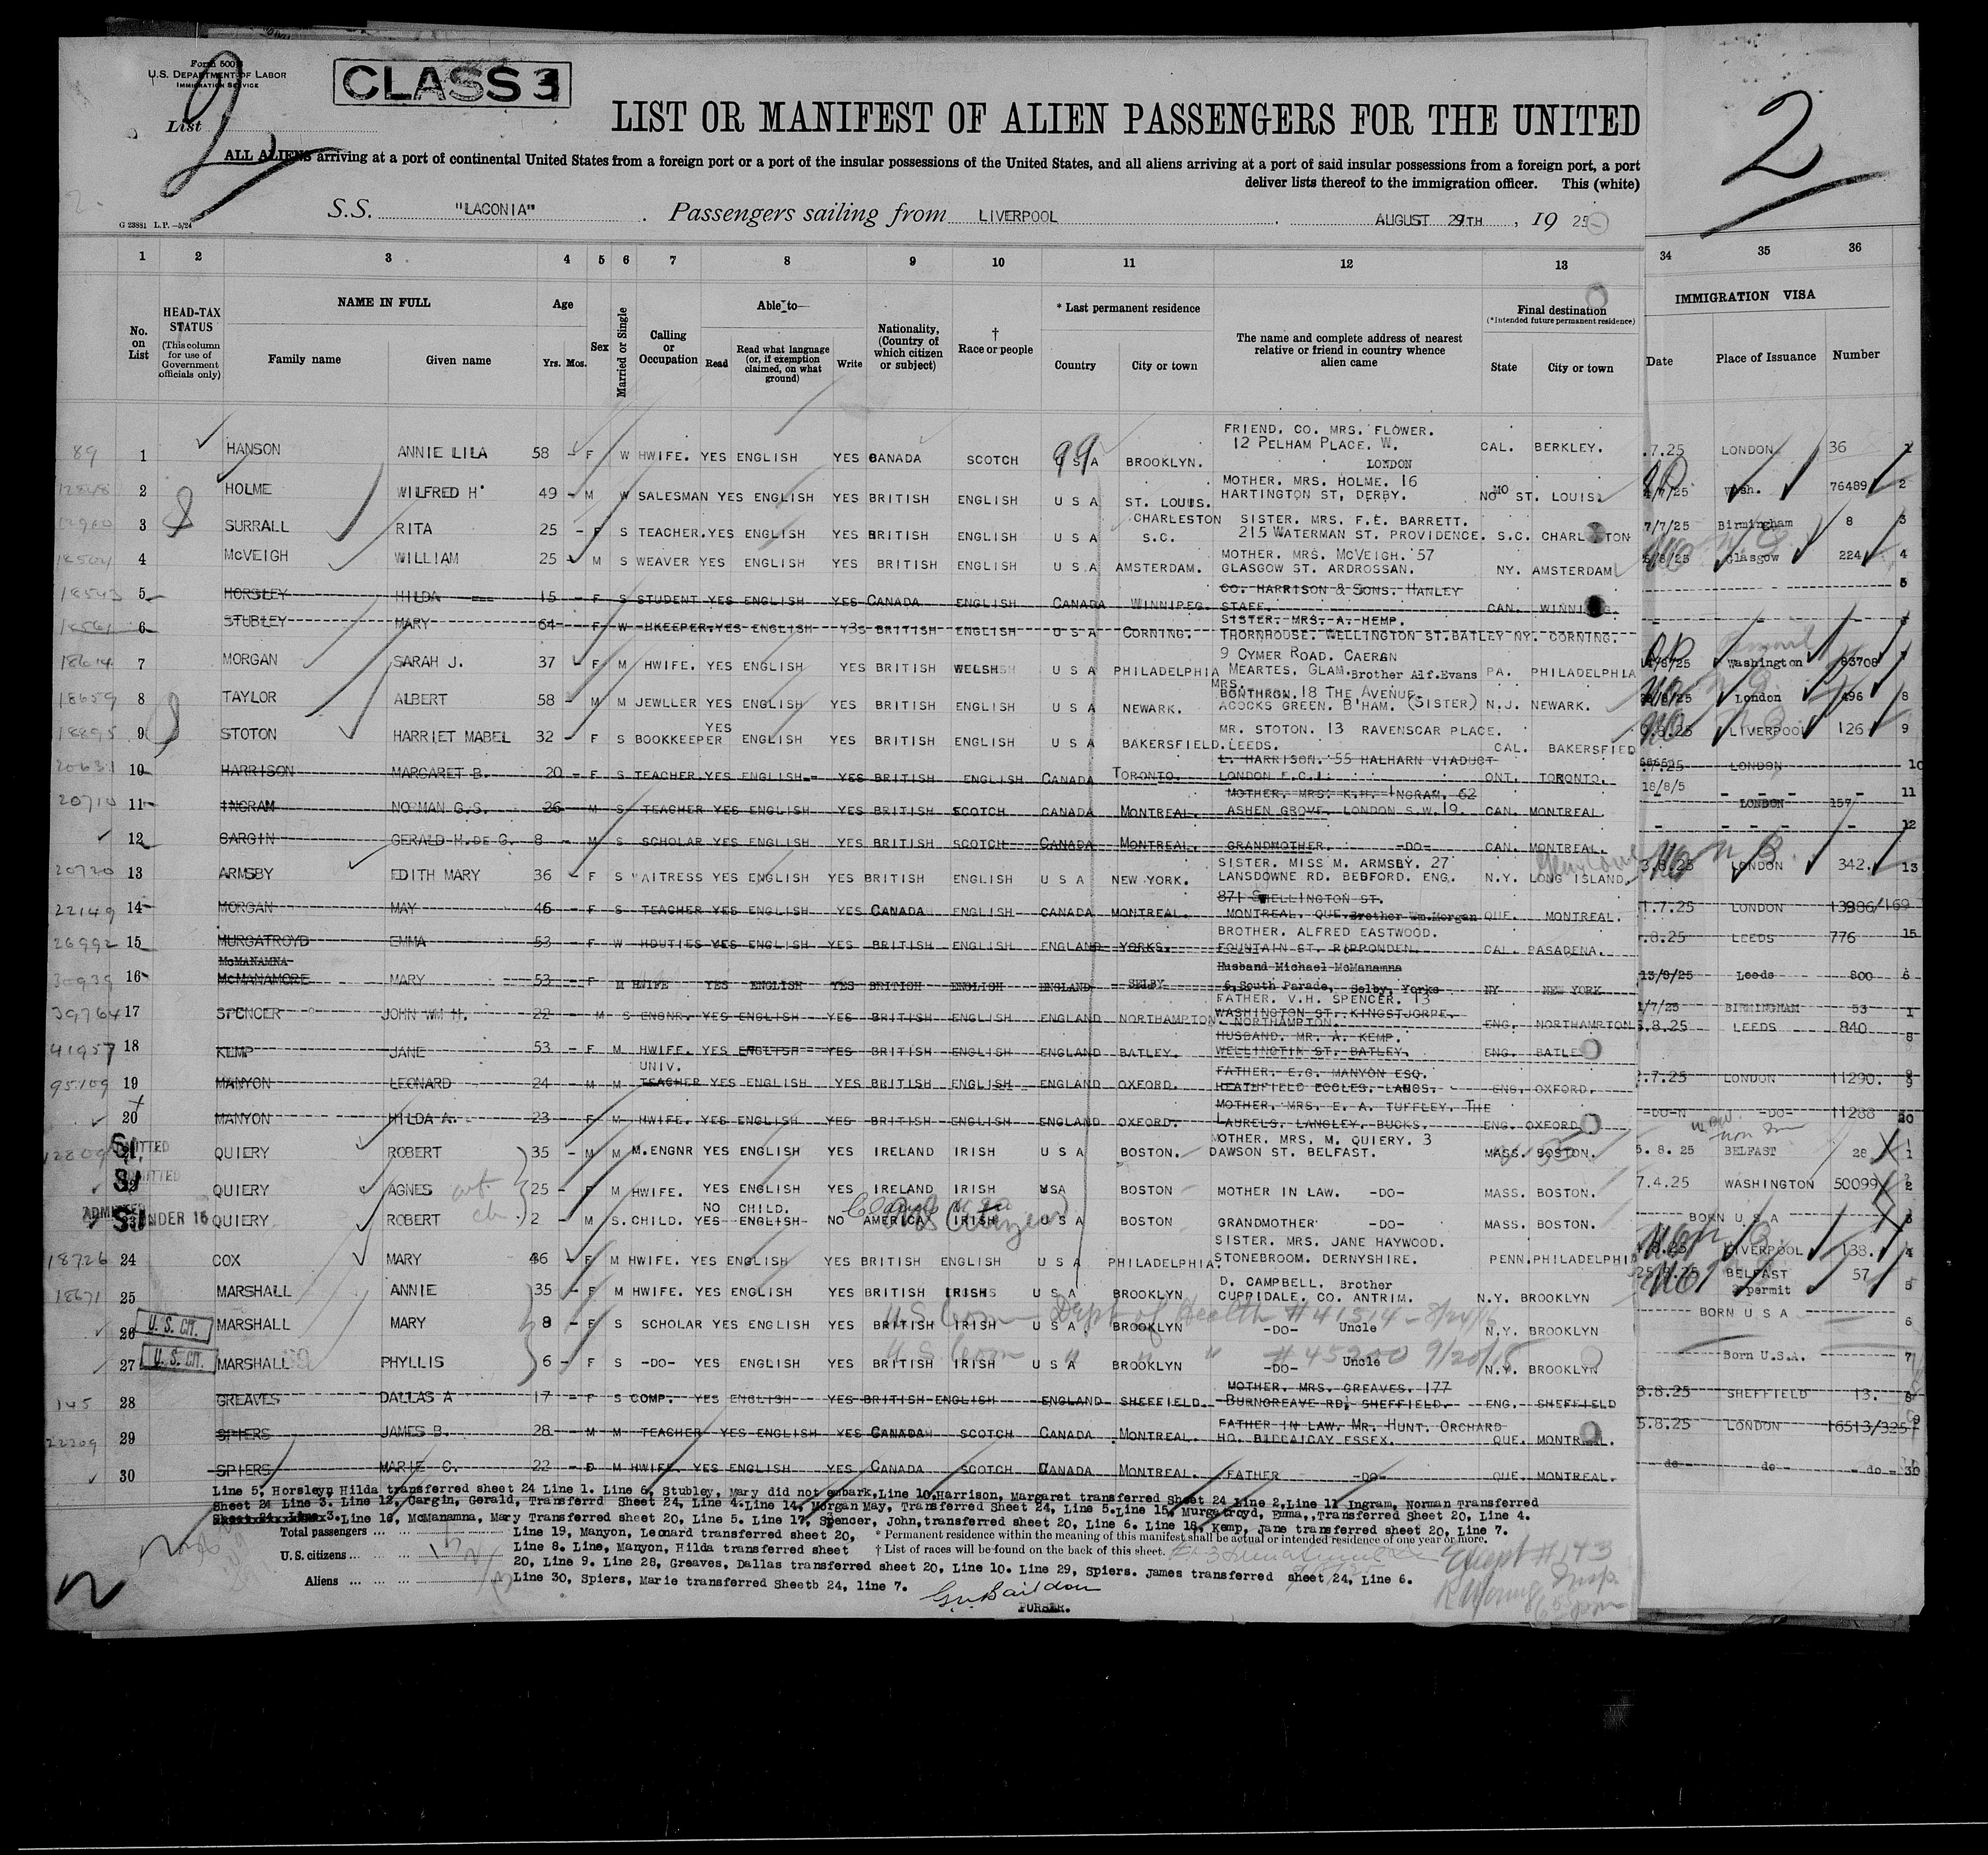 Form 500
U.S. DEPARTMENT OF LABOR
IMMIGRATION SERVICE
CLASS 3
List 2
2
LIST OR MANIFEST OF ALIEN PASSENGERS FOR THE UNITED
ALL ALIENS arriving at a port of continental United States from a foreign port or a port of the insular possessions of the United States, and all aliens arriving at a port of said insular possessions from a foreign port, a port
deliver lists thereof to the immigration officer. This (white)
S.S. "LACONIA" . Passengers sailing from LIVERPOOL . AUGUST 29TH , 19 25
G 23881 L.P.—5/24
1 2 3 4 5 6 7 8 9 10 11 12 13 34 35 36
No. on List
HEAD-TAX STATUS (This column for use of Government officials only)
NAME IN FULL
Family name Given name
Age Yrs. Mos.
Sex
Married or Single
Calling or Occupation
Able to—
Read Read what language (or, if exemption claimed, on what ground) Write
Nationality, (Country of which citizen or subject)
† Race or people
* Last permanent residence
Country City or town
The name and complete address of nearest relative or friend in country whence alien came
Final destination (*Intended future permanent residence)
State City or town
IMMIGRATION VISA
Date Place of Issuance Number
89 1 HANSON ANNIE LILA 58 - F W HWIFE. YES ENGLISH YES CANADA SCOTCH U S A BROOKLYN. FRIEND. CO. MRS. FLOWER. 12 PELHAM PLACE. W. LONDON CAL. BERKLEY. .7.25 LONDON 36 1
2 HOLME WILFRED H. 49 - M W SALESMAN YES ENGLISH YES BRITISH ENGLISH U S A ST. LOUIS. MOTHER. MRS. HOLME. 16 HARTINGTON ST, DERBY. MO ST. LOUIS. /7/25 Wash. 76489 2
3 SURRALL RITA 25 - F S TEACHER. YES ENGLISH YES BRITISH ENGLISH U S A CHARLESTON S.C. SISTER. MRS. F.E. BARRETT. 215 WATERMAN ST. PROVIDENCE. S.C. CHARLESTON 7/7/25 Birmingham 8 3
4 McVEIGH WILLIAM 25 M S WEAVER YES ENGLISH YES BRITISH ENGLISH U S A AMSTERDAM. MOTHER. MRS. McVEIGH. 57 GLASGOW ST. ARDROSSAN. NY. AMSTERDAM /8/25 Glasgow 224 4
18543 5 HORSLEY HILDA 15 - F S STUDENT YES ENGLISH YES CANADA ENGLISH CANADA WINNIPEG. CO. HARRISON & SONS. HANLEY STAFF. CAN. WINNIPEG. 5
18561 6 STUBLEY MARY 64 - F W HKEEPER. YES ENGLISH Y3S BRITISH ENGLISH U S A CORNING. SISTER. MRS. A. HEMP. THORNHOUSE. WELLINGTON ST. BATLEY NY. CORNING.
18614 7 MORGAN SARAH J. 37 - F M HWIFE. YES ENGLISH YES BRITISH WELSH U S A PHILADELPHIA 9 CYMER ROAD. CAERAN MEARTES. GLAM. Brother Alf.Evans PA. PHILADELPHIA /8/25 Washington 83708
18659 8 TAYLOR ALBERT 58 - M M JEWLLER YES ENGLISH YES BRITISH ENGLISH U S A NEWARK. MRS. BONTHRON. 18 THE AVENUE. ACOCKS GREEN. B'HAM. (SISTER) N.J. NEWARK. /8/25 London 496 8
18895 9 STOTON HARRIET MABEL 32 - F S BOOKKEEPER YES ENGLISH YES BRITISH ENGLISH U S A BAKERSFIELD. MR. STOTON. 13 RAVENSCAR PLACE. LEEDS. CAL. BAKERSFIED .8.25 LIVERPOOL 126 9
20631 10 HARRISON MARGARET B. 20 - F S TEACHER YES ENGLISH YES BRITISH ENGLISH CANADA TORONTO. L. HARRISON. 55 HALHARN VIADUCT LONDON E.C.1. ONT. TORONTO. .7.25 LONDON 10
20710 11 INGRAM NORMAN G.S. 26 - M S TEACHER YES ENGLISH YES BRITISH SCOTCH CANADA MONTREAL. MOTHER. MRS. K.H. INGRAM. 62 ASHEN GROVE. LONDON S.W. 19. CAN. MONTREAL. 18/8/5 LONDON 157 11
12 CARGIN GERALD H. DE G. 8 - M S SCHOLAR YES ENGLISH YES BRITISH SCOTCH CANADA MONTREAL. GRANDMOTHER. -DO- CAN. MONTREAL. 12
20720 13 ARMSBY EDITH MARY 36 - F S WAITRESS YES ENGLISH YES BRITISH ENGLISH U S A NEW YORK. SISTER. MISS M. ARMSBY. 27 LANSDOWNE RD. BEBFORD. ENG. N.Y. LONG ISLAND. 3.8.25 LONDON 342. 13
22149 14 MORGAN MAY 46 - F S TEACHER YES ENGLISH YES CANADA ENGLISH CANADA MONTREAL. 871 SWELLINGTON ST. MONTREAL. QUE. Brother Wm.Morgan QUE. MONTREAL. 1.7.25 LONDON 13986/169
26992 15 MURGATROYD EMMA 53 - F W HDUTIES YES ENGLISH YES BRITISH ENGLISH ENGLAND YORKS. BROTHER. ALFRED EASTWOOD. FOUNTAIN ST. RIPPONDEN. CAL. PASADENA. .8.25 LEEDS 776 15
30939 16 McMANAMNA McMANAMORE MARY 53 - F M HWIFE YES ENGLISH YES BRITISH ENGLISH ENGLAND SELBY Husband Michael McManamna 6, South Parade, Selby, Yorks NY NEW YORK 13/8/25 Leeds 800 6
39764 17 SPENCER JOHN WM H. 22 - M S ENGNR. YES ENGLISH YES BRITISH ENGLISH ENGLAND NORTHAMPTON. FATHER. V.H. SPENCER. 13 WASHINGTON ST. KINGSTJORPE. NORTHAMPTON. ENG. NORTHAMPTON /7/25 BIRMINGHAM 53
41957 18 KEMP JANE 53 - F M HWIFE. YES ENGLISH YES BRITISH ENGLISH ENGLAND BATLEY. HUSBAND. MR. A. KEMP. WELLINGTIN ST. BATLEY. ENG. BATLE .8.25 LEEDS 840 8
95109 19 MANYON LEONARD 24 - M M UNIV. TEACHER YES ENGLISH YES BRITISH ENGLISH ENGLAND OXFORD. FATHER. E.G. MANYON ESQ. HEATHFIELD ECCLES. LANCS. ENG. OXFORD. .7.25 LONDON 11290. 9
20 MANYON HILDA A. 23 - F M HWIFE. YES ENGLISH YES BRITISH ENGLISH ENGLAND OXFORD. MOTHER. MRS. E. A. TUFFLEY. THE LAURELS. LANGLEY. BUCKS. ENG. OXFORD -DO-N -DO- 11288 20
SI ADMITTED QUIERY ROBERT 35 - M M M.ENGNR YES ENGLISH YES IRELAND IRISH U S A BOSTON. MOTHER. MRS. M. QUIERY. 3 DAWSON ST. BELFAST. MASS. BOSTON. 5. 8. 25 BELFAST 28 1
SI ADMITTED QUIERY AGNES 25 - F M HWIFE. YES ENGLISH YES IRELAND IRISH USA BOSTON MOTHER IN LAW. -DO- MASS. BOSTON. 7.4.25 WASHINGTON 50099 2
SI ADMITTED UNDER 16 QUIERY ROBERT 2 - M S. CHILD. YES NO CHILD. ENGLISH NO AMERICA IRISH U S A BOSTON GRANDMOTHER -DO- MASS. BOSTON. BORN U S A 3
18726 24 COX MARY 46 - F M HWIFE. YES ENGLISH YES BRITISH ENGLISH U S A PHILADELPHIA. SISTER. MRS. JANE HAYWOOD. STONEBROOM. DERNYSHIRE. PENN. PHILADELPHIA .8.25 LIVERPOOL 138. 4
18671 25 MARSHALL ANNIE 35 - F M HWIFE. YES ENGLISH YES BRITISH IRISH U S A BROOKLYN D. CAMPBELL. Brother CUPPIDALE. CO. ANTRIM. N.Y. BROOKLYN BELFAST permit 57 5
U.S. CIT. 26 MARSHALL MARY 8 - F S SCHOLAR YES ENGLISH YES BRITISH IRISH U S A BROOKLYN -DO- Uncle N.Y. BROOKLYN BORN U S A 6
Dept of Health #41514
U.S. CIT. 27 MARSHALL PHYLLIS 6 - F S -DO- YES ENGLISH YES BRITISH IRISH U S A BROOKLYN -DO- Uncle N.Y. BROOKLYN Born U.S.A. 7
" " #45200 9/20/18
145 28 GREAVES DALLAS A 17 - F S COMP. YES ENGLISH YES BRITISH ENGLISH ENGLAND SHEFFIELD. MOTHER. MRS. GREAVES. 177 BURNGREAVE RD. SHEFFIELD. ENG. SHEFFIELD 3.8.25 SHEFFIELD 13.
22309 29 SPIERS JAMES B. 28 - M M TEACHER YES ENGLISH YES CANADA SCOTCH CANADA MONTREAL. FATHER IN LAW. MR. HUNT. ORCHARD HO. BILLAICAY ESSEX. QUE. MONTREAL. 5.8.25 LONDON 16513/325
30 SPIERS MARIE C. 22 - M HWIFE. YES ENGLISH YES CANADA SCOTCH CANADA MONTREAL. FATHER -DO- QUE. MONTREAL. do - do - do - 30
Line 5, Horsley, Hilda transferred sheet 24 Line 1. Line 6, Stubley, Mary did not embark. Line 10, Harrison, Margaret transferred Sheet 24 Line 2, Line 11 Ingram, Norman Transferred
Sheet 24 Line 3. Line 12, Cargin, Gerald, Transferrd Sheet 24, Line 4. Line 14, Morgan May, Transferred Sheet 24, Line 5. Line 15, Murgatroyd, Emma,, Transferred Sheet 20, Line 4.
Line 16, McManamna, Mary Transferred sheet 20, Line 5. Line 17, Spencer, John, transferred sheet 20, Line 6. Line 18, Kemp, Jane transferred sheet 20, Line 7.
Total passengers ... ... Line 19, Manyon, Leonard transferred sheet 20, * Permanent residence within the meaning of this manifest shall be actual or intended residence of one year or more.
U.S. citizens ... ... ... Line 8. Line, Manyon, Hilda transferred sheet † List of races will be found on the back of this sheet.
20, Line 9. Line 28, Greaves, Dallas transferred sheet 20, Line 10. Line 29, Spiers. James transferred sheet 24, Line 6.
Aliens ... ... ... Line 30, Spiers, Marie transferred Sheetb 24, line 7.
PURSER.